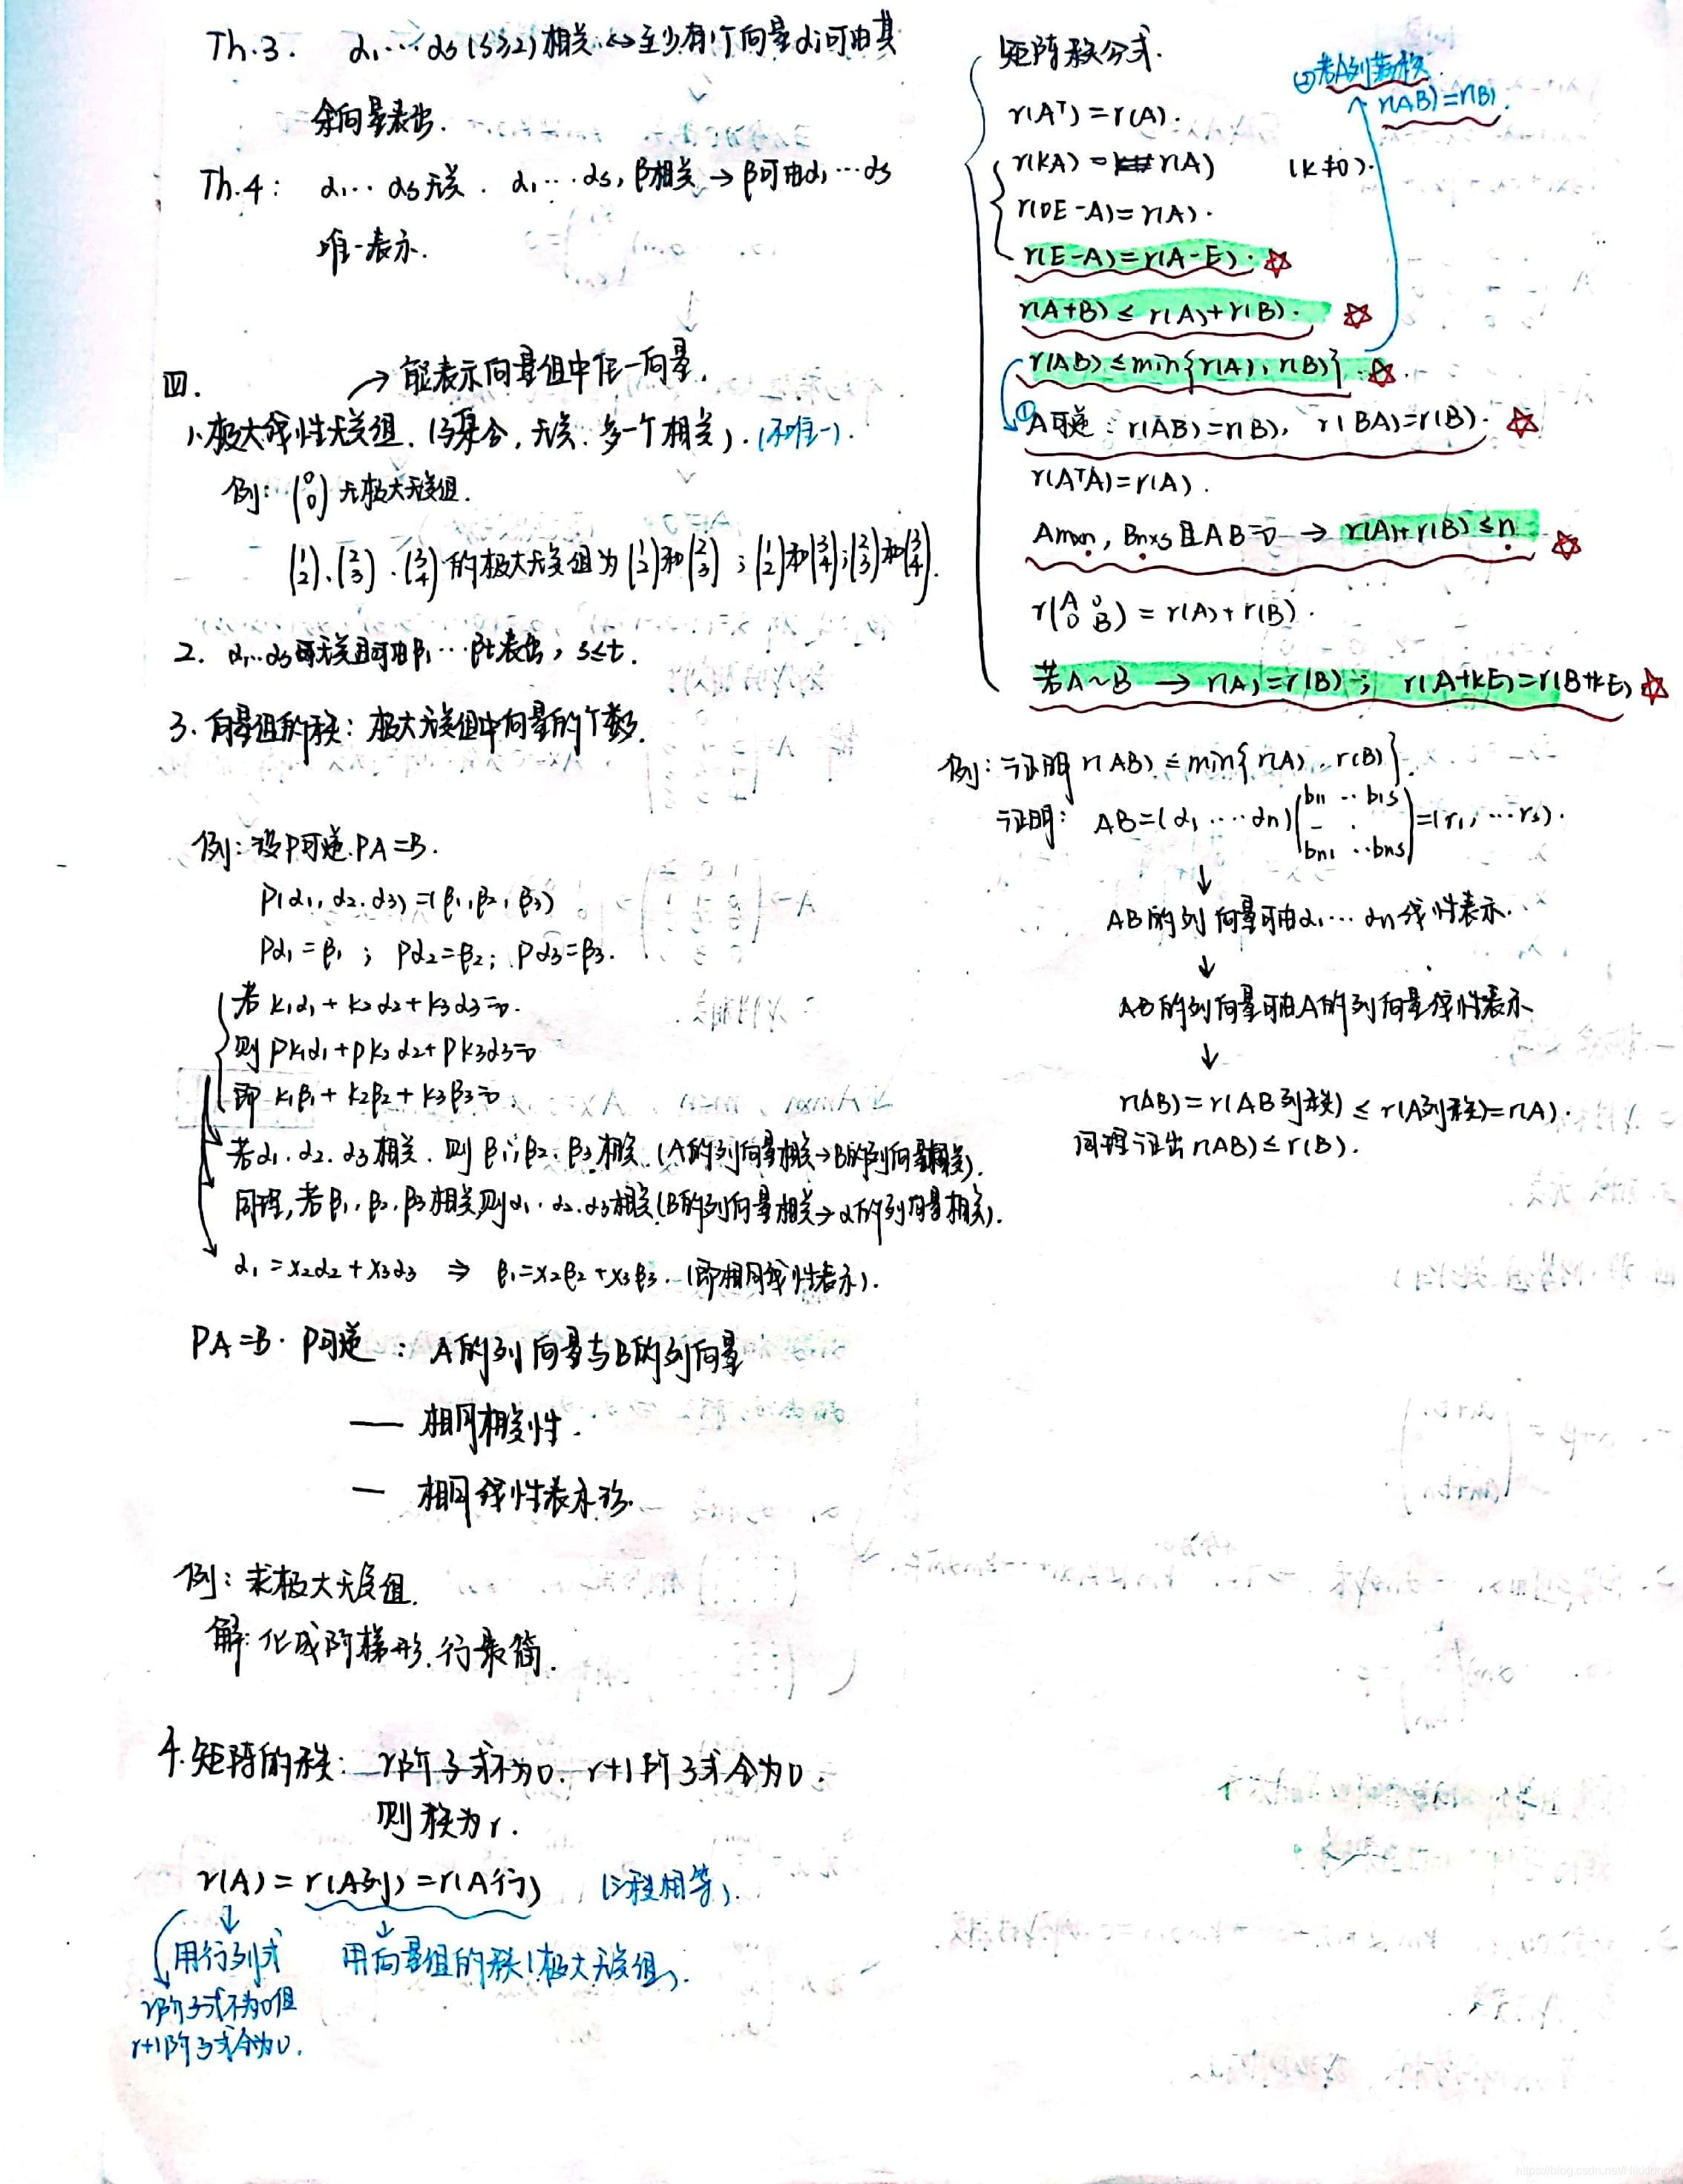 Th.3. α₁…αs(s≥2)相关 ↔ 至少有1个向量αi可由其
余向量表出.
Th.4: α₁…αs无关. α₁…αs, β相关 → β可由α₁…αs
唯一表示.
四.
→ 能表示向量组中任一向量.
1. 极大线性无关组. (子集合, 无关. 多一个相关). (不唯一).
例: (0 0) 无极大无关组.
(1 2)、(2 3)、(3 4)的极大无关组为(1 2)和(2 3); (1 2)和(3 4); (2 3)和(3 4).
2. α₁…αs无关且可由β₁…βt表出, s≤t.
3. 向量组的秩: 极大无关组中向量的个数.
例: 设P可逆.PA=B.
P(α₁, α₂, α₃)=(β₁, β₂, β₃)
Pα₁=β₁; Pα₂=β₂; Pα₃=β₃.
若 k₁α₁+k₂α₂+k₃α₃=0.
则 Pk₁α₁+Pk₂α₂+Pk₃α₃=0
即 k₁β₁+k₂β₂+k₃β₃=0
若α₁.α₂.α₃相关. 则 β₁, β₂, β₃相关 (A的列向量相关→B的列向量相关).
同理, 若β₁.β₂.β₃相关则α₁.α₂.α₃相关(B的列向量相关→α的列向量相关).
α₁=x₂α₂+x₃α₃ ⇒ β₁=x₂β₂+x₃β₃. (即相同线性表示).
PA=B. P可逆: A的列向量与B的列向量
— 相同相关性.
— 相同线性表示
例: 求极大无关组.
解: 化成阶梯形.行最简.
4.矩阵的秩: r阶子式不为0. r+1阶子式全为0.
则秩为r.
r(A)=r(A列)=r(A行) (三秩相等).
用行列式 用向量组的秩(极大无关组).
r阶子式不为0但
r+1阶子式全为0.
矩阵秩公式.
②若A列满秩
r(AB)=r(B).
r(Aᵀ)=r(A).
r(kA)=r(A) (k≠0).
r(0E-A)=r(A).
r(E-A)=r(A-E).
r(A+B)≤r(A)+r(B).
r(AB)≤min{r(A), r(B)}
①A可逆: r(AB)=r(B), r(BA)=r(B).
r(AᵀA)=r(A).
Am×n, Bn×s且AB=0 → r(A)+r(B)≤n
r(A 0 0 B)=r(A)+r(B).
若A~B → r(A)=r(B); r(A+kE)=r(B+kE)
例: 证明 r(AB)≤min{r(A), r(B)}.
证明: AB=(α₁…αn)(b₁₁…b₁s bn₁…bns)=(r₁, …rs).
↓
AB的列向量可由α₁…αn线性表示.
↓
AB的列向量可由A的列向量线性表示
↓
r(AB)=r(AB列秩)≤r(A列秩)=r(A).
同理证出r(AB)≤r(B).